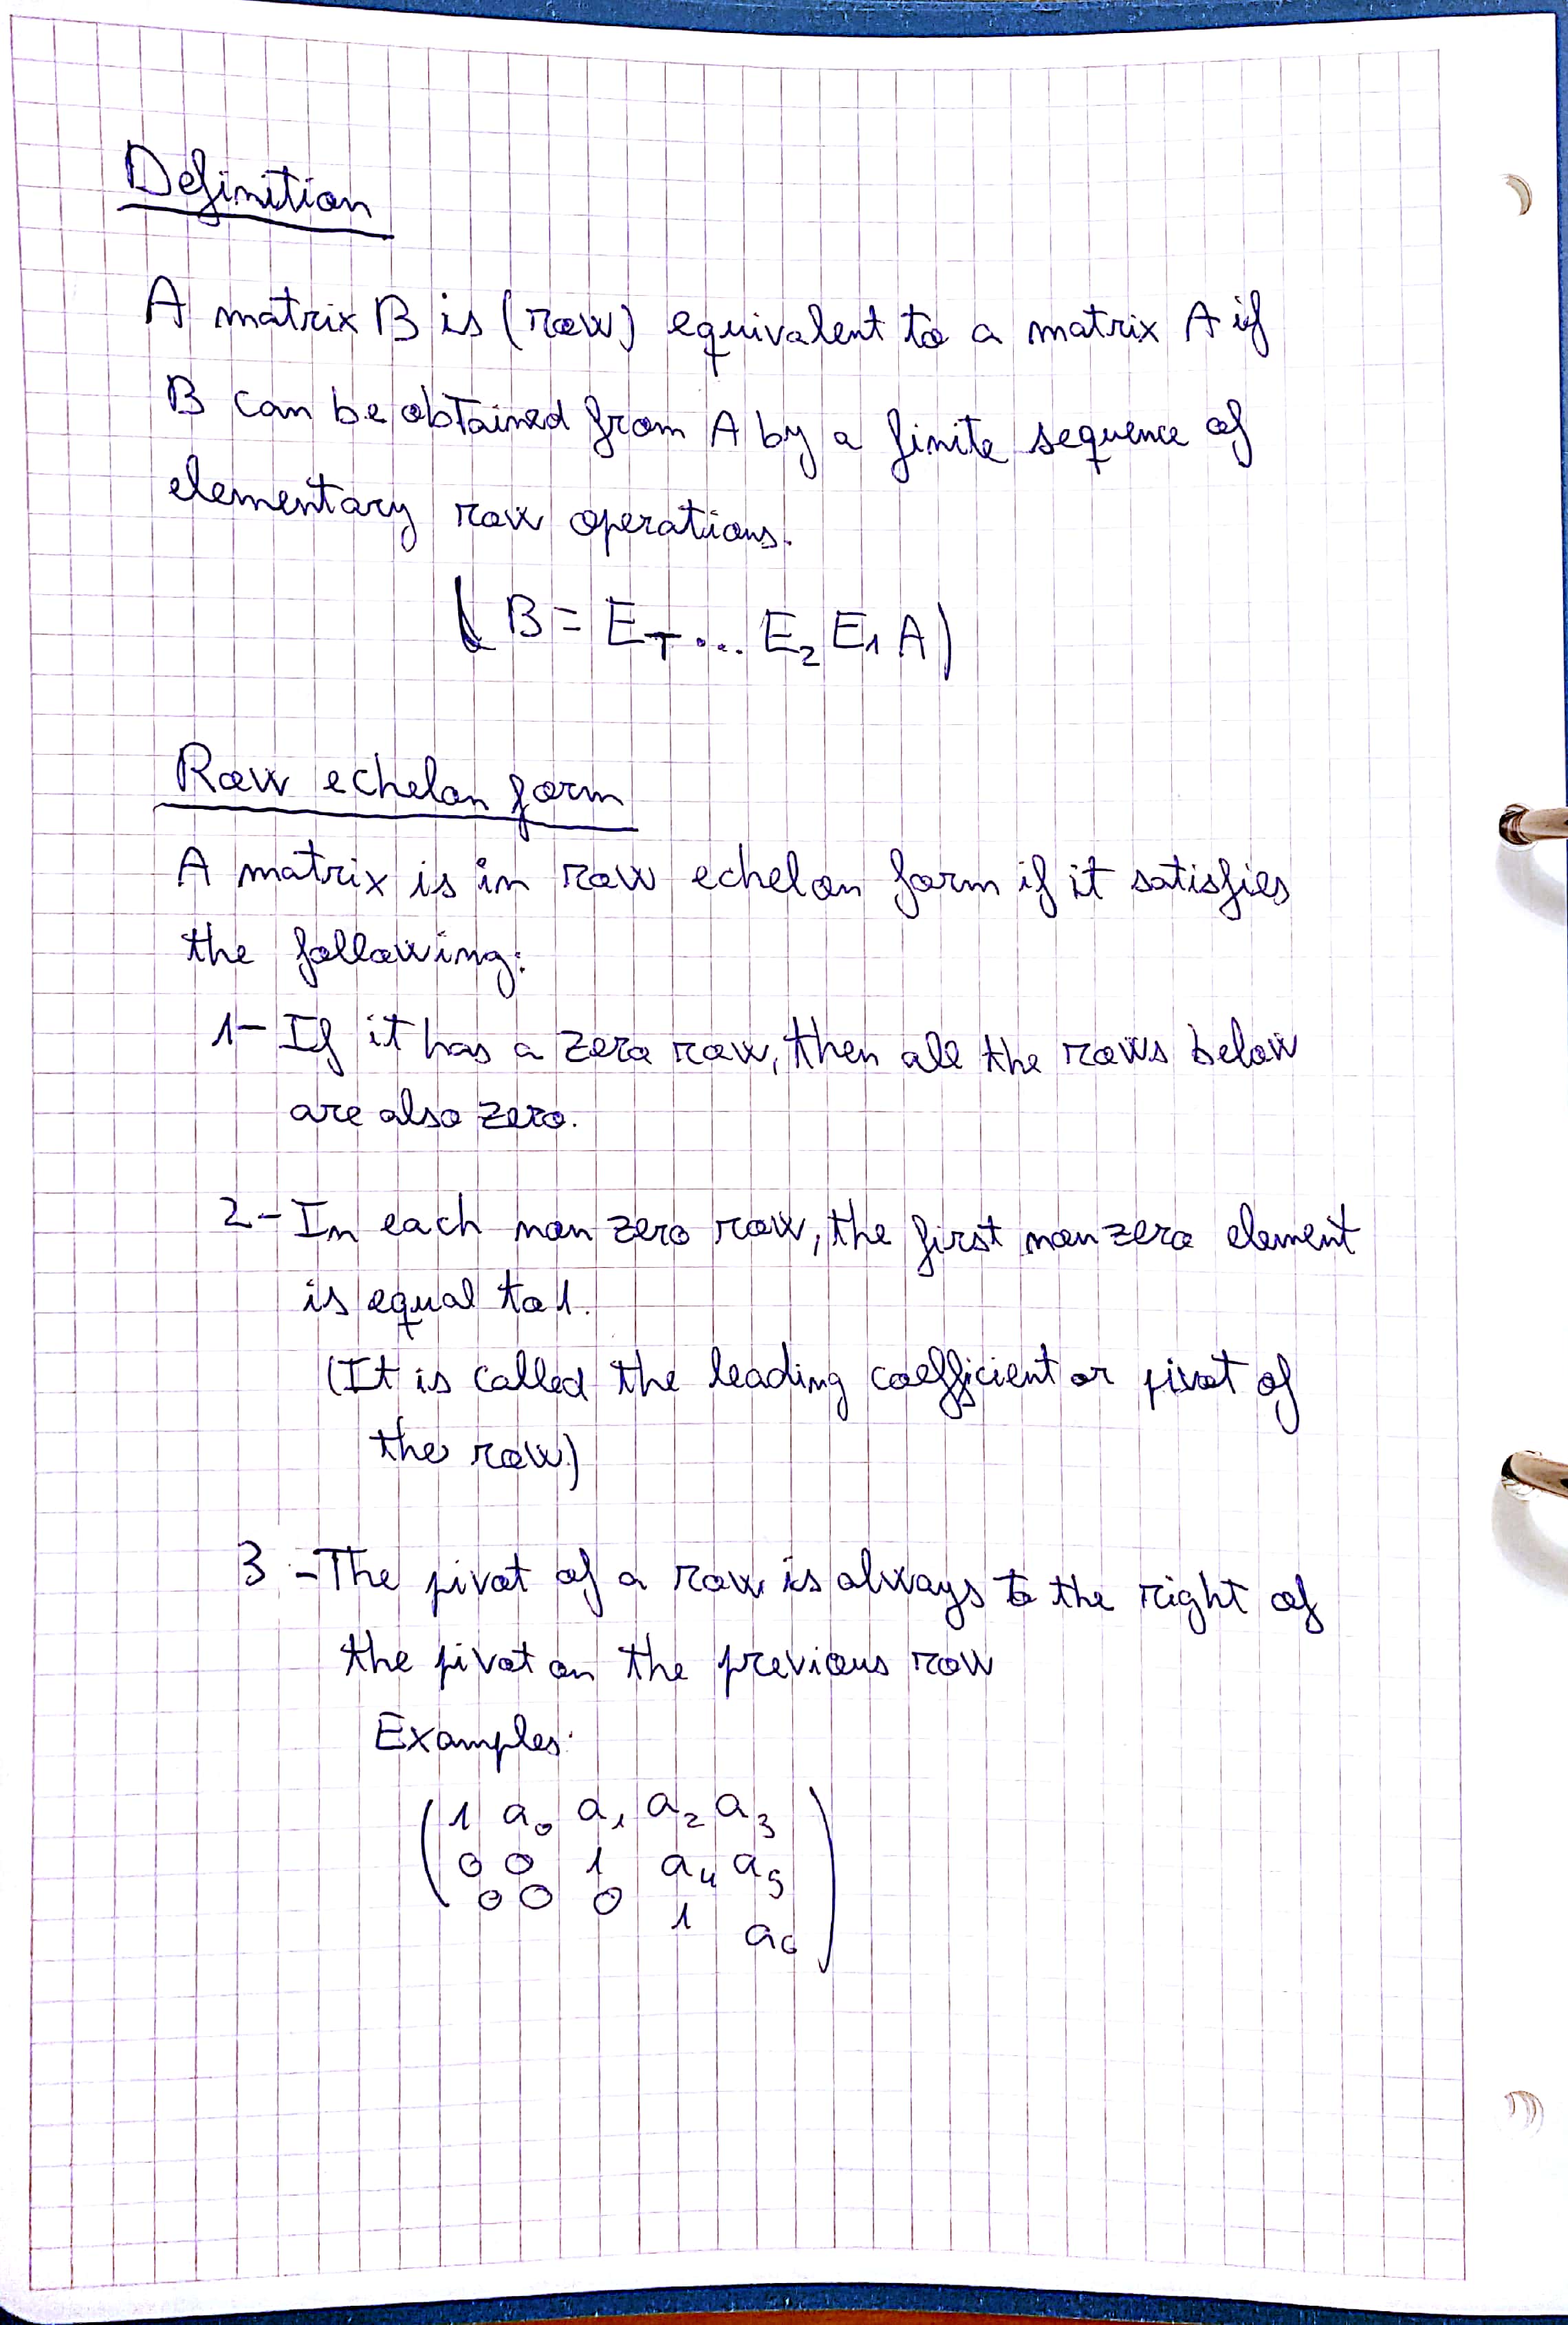 Definition
A matrix B is (row) equivalent to a matrix A if
B can be obtained from A by a finite sequence of
elementary row operations.
( B = E_T ... E₂ E₁ A )
Row echelon form
A matrix is in row echelon form if it satisfies
the following:
1- If it has a zero row, then all the rows below
are also zero.
2- In each non zero row, the first non zero element
is equal to 1.
(It is called the leading coefficient or pivot of
the row.)
3 - The pivot of a row is always to the right of
the pivot on the previous row
Examples:
1 a₀ a₁ a₂ a₃
0 0 1 a₄ a₅
0 0 0 1 a₆